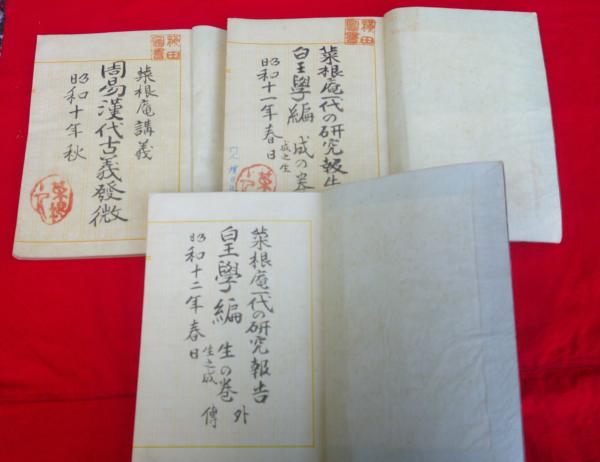 菜根庵講義
周易漢代古義發微
昭和十年秋
菜根庵一代の研究報告
皇學編 成の卷
成之生
昭和十一年春日
菜根庵一代の研究報告
皇學編 生の卷 外傳
生之成
昭和十二年春日